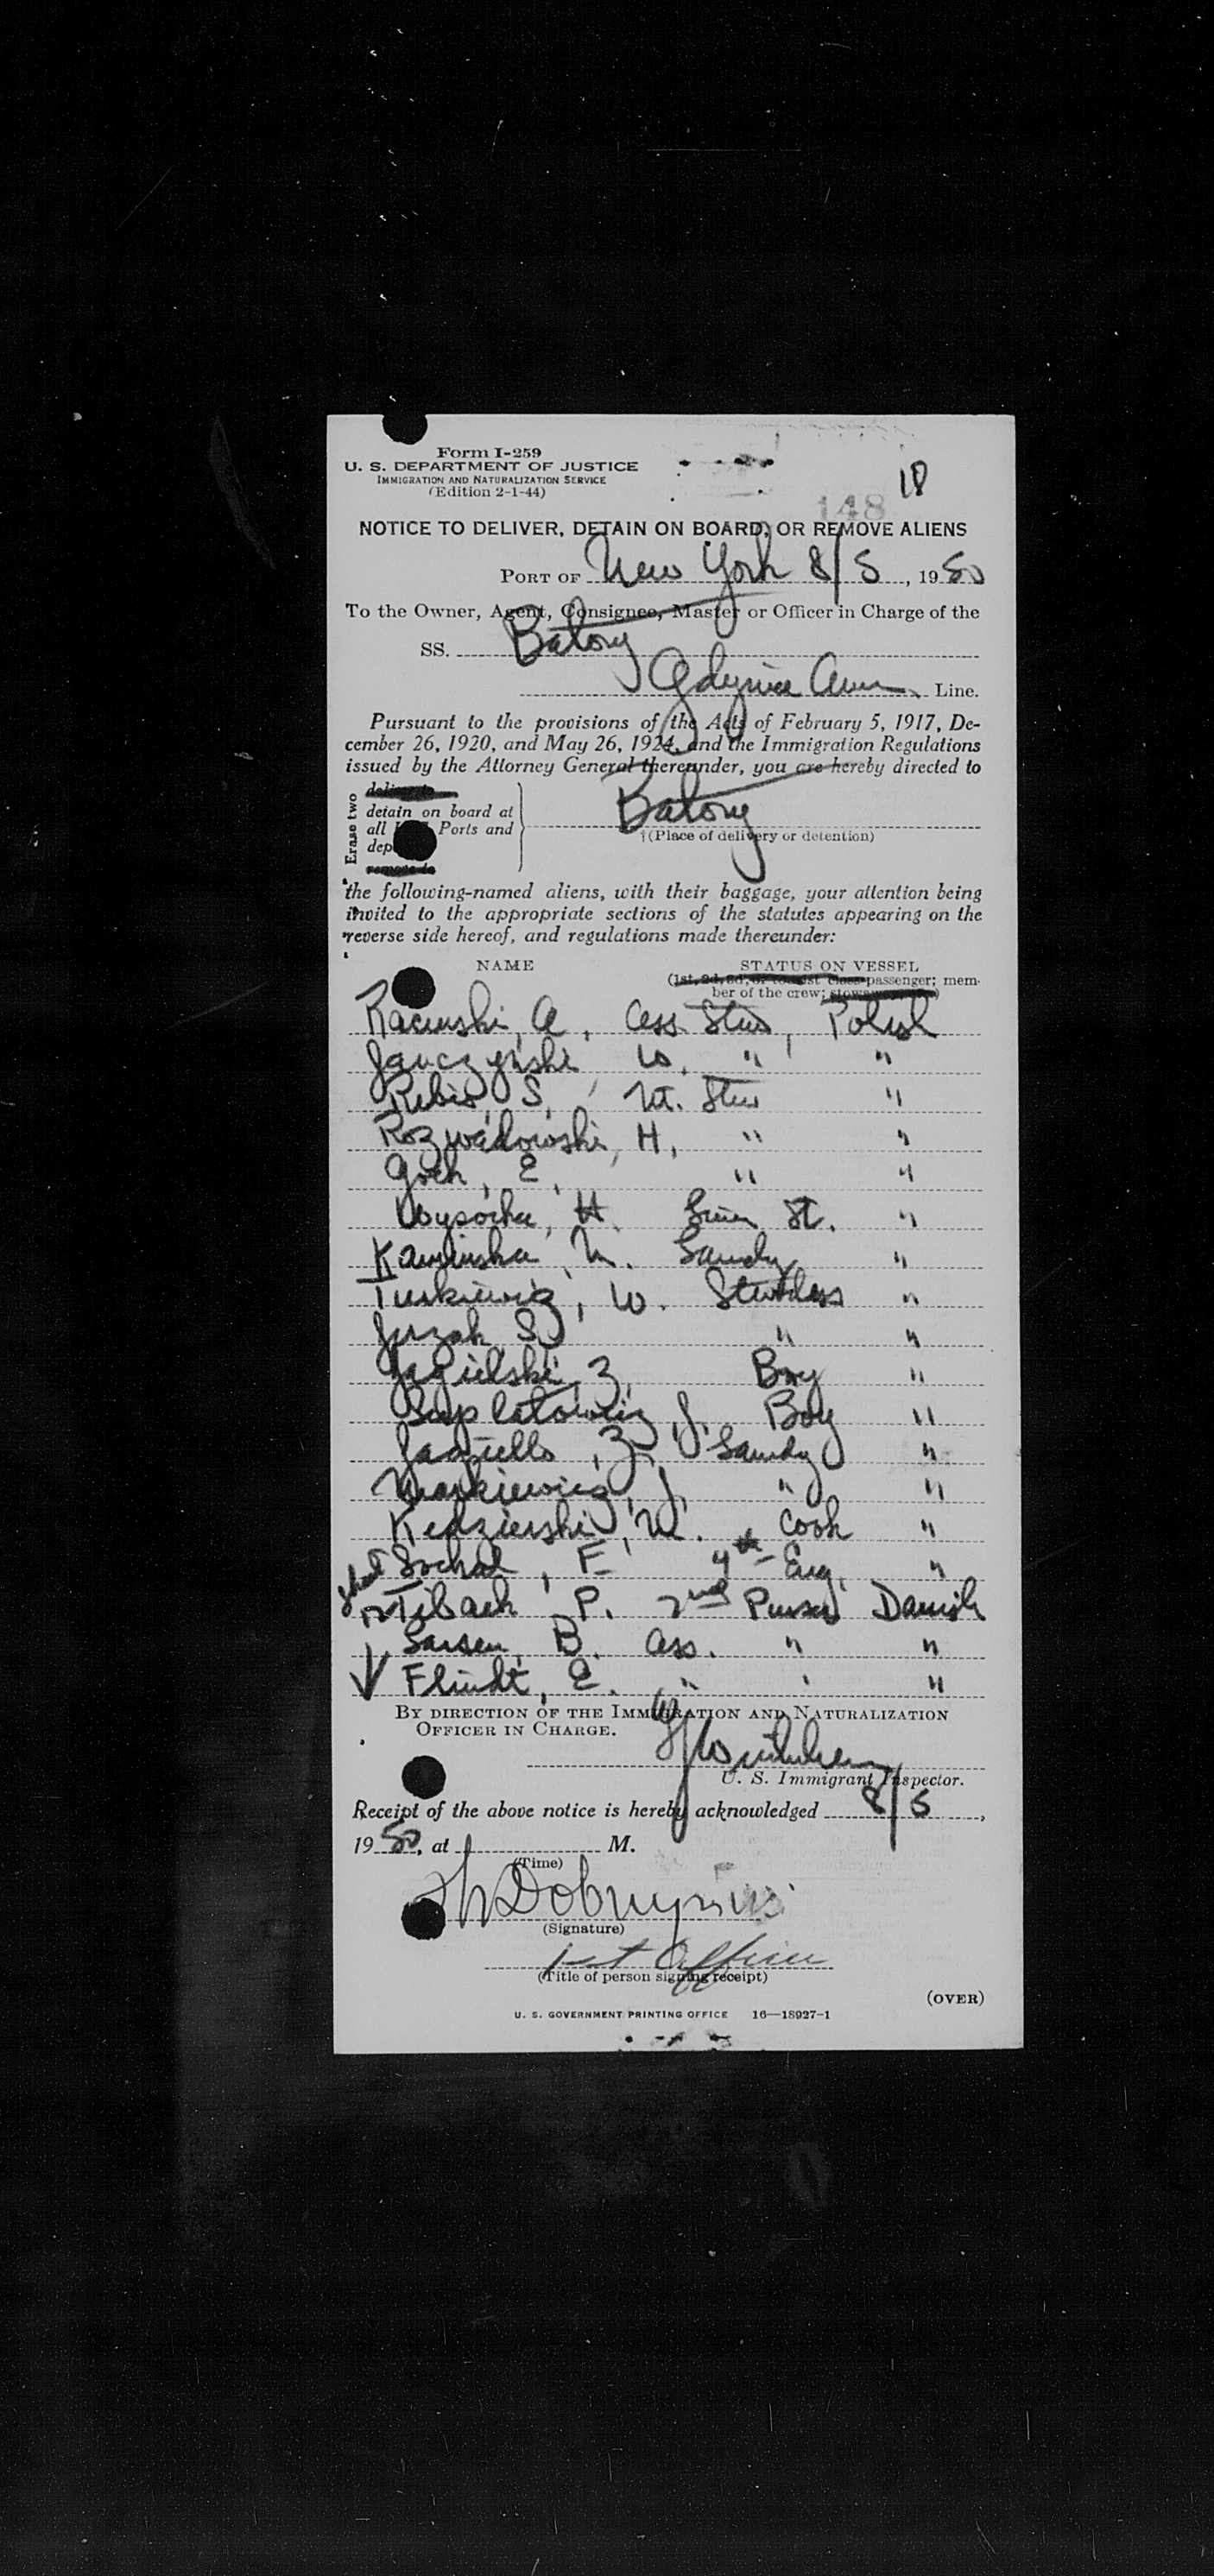 Form I-259
U. S. DEPARTMENT OF JUSTICE
IMMIGRATION AND NATURALIZATION SERVICE
(Edition 2-1-44)
18
148
NOTICE TO DELIVER, DETAIN ON BOARD, OR REMOVE ALIENS
PORT OF New York 8/5, 1950
To the Owner, Agent, Consignee, Master or Officer in Charge of the
SS. Batory
Gdynia Am. Line.
Pursuant to the provisions of the Acts of February 5, 1917, De-
cember 26, 1920, and May 26, 1924, and the Immigration Regulations
issued by the Attorney General thereunder, you are hereby directed to
Erase two
detain on board at
all Ports and
dep
Batory
†(Place of delivery or detention)
the following-named aliens, with their baggage, your attention being
invited to the appropriate sections of the statutes appearing on the
reverse side hereof, and regulations made thereunder:
NAME
STATUS ON VESSEL
(1st, 2d, 3d, or tourist class passenger; mem-
ber of the crew;
A, Ass. Stew, Polish
W. " "
Rebis, S, Nt. Stew "
Rozwadowski, H, " "
Goch, E, " "
Wysocka, H. St. "
Kaminska, M. Laundry "
Turkiewicz, W. Stewdess "
Jerzak S " "
Jagielski, Z, Boy "
J. Boy "
Z. Laundry "
Markiewicz J, " "
Kedzierski, M. Cook "
Sochal, F 4th Eng. "
Tiback P. 2nd Purser Danish
Larsen, B. Ass. " "
Flindt, E. " " "
BY DIRECTION OF THE IMMIGRATION AND NATURALIZATION
OFFICER IN CHARGE.
U. S. Immigrant Inspector.
Receipt of the above notice is hereby acknowledged 8/5,
1950, at M.
(Time)
(Signature)
1st Officer
(Title of person signing receipt)
(OVER)
U. S. GOVERNMENT PRINTING OFFICE 16—18927-1